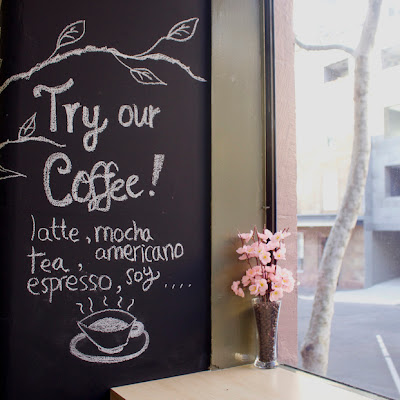 Try our
Coffee!
latte, mocha
tea, americano
espresso, soy ....